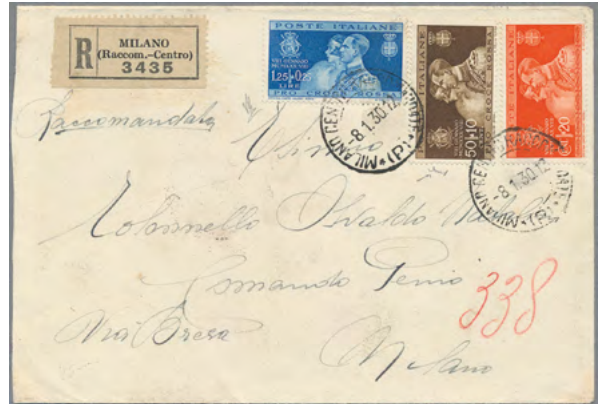 R
MILANO
(Raccom.-Centro)
3435
POSTE ITALIANE
VIII GENNAIO
MCMXXX VIII
1,25+0,25
LIRE
PRO CROCE ROSSA
POSTE ITALIANE
50+10
PRO CROCE ROSSA
POSTE ITALIANE
20
MILANO CENTRO
-8.1.30.12
(P)
MILANO CENTRO
-8.1.30.12
(P)
Raccomandata
Colonnello Osvaldo
Comando Genio
Via Brera
Milano
338